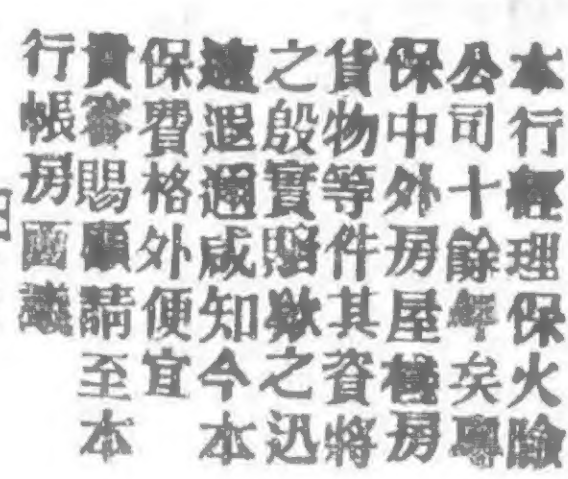 本行經理保火險
公司十餘年矣專
保中外房屋棧房
貨物等件其資將
之殷實賠欵之迅
速遐邇咸知今本
保費格外便宜
貴客賜顧請至本
行帳房面議